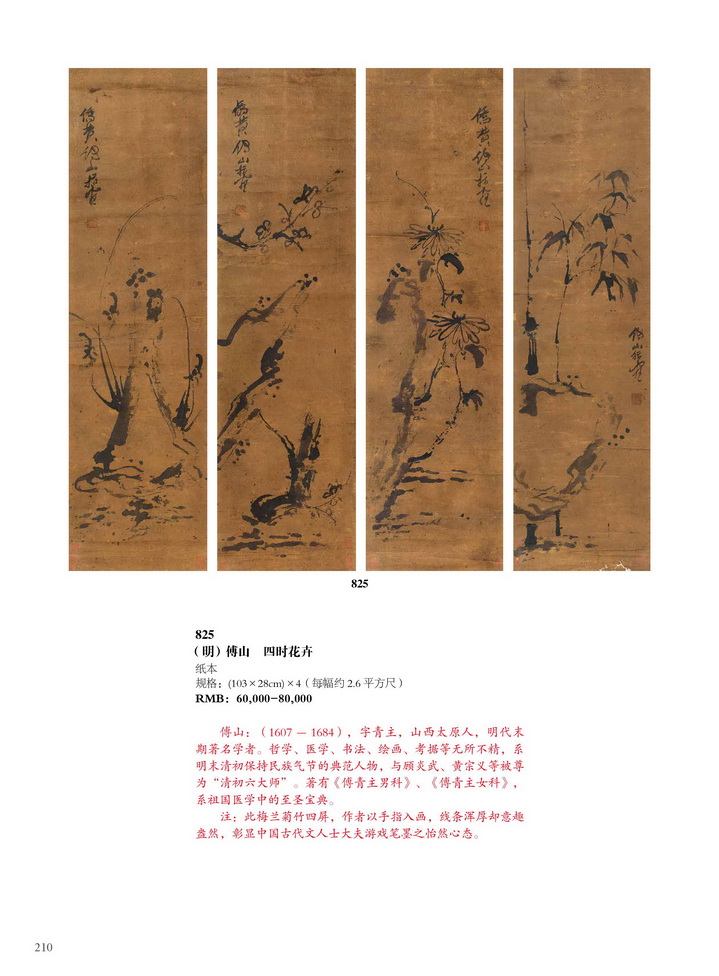 825
825
（明）傅山　四时花卉
纸本
规格：(103×28cm)×4（每幅约 2.6 平方尺）
RMB：60,000-80,000
傅山：（1607 — 1684），字青主，山西太原人，明代末
期著名学者。哲学、医学、书法、绘画、考据等无所不精，系
明末清初保持民族气节的典范人物，与顾炎武、黄宗义等被尊
为“清初六大师”。著有《傅青主男科》、《傅青主女科》，
系祖国医学中的至圣宝典。
注：此梅兰菊竹四屏，作者以手指入画，线条浑厚却意趣
盎然，彰显中国古代文人士大夫游戏笔墨之怡然心态。
210